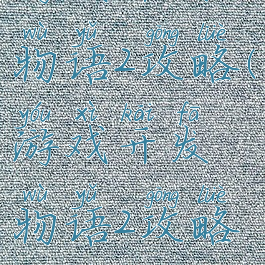 wù yǔ gōng lüè
物语2攻略(
yóu xì kāi fā
游戏开发
wù yǔ gōng lüè
物语2攻略